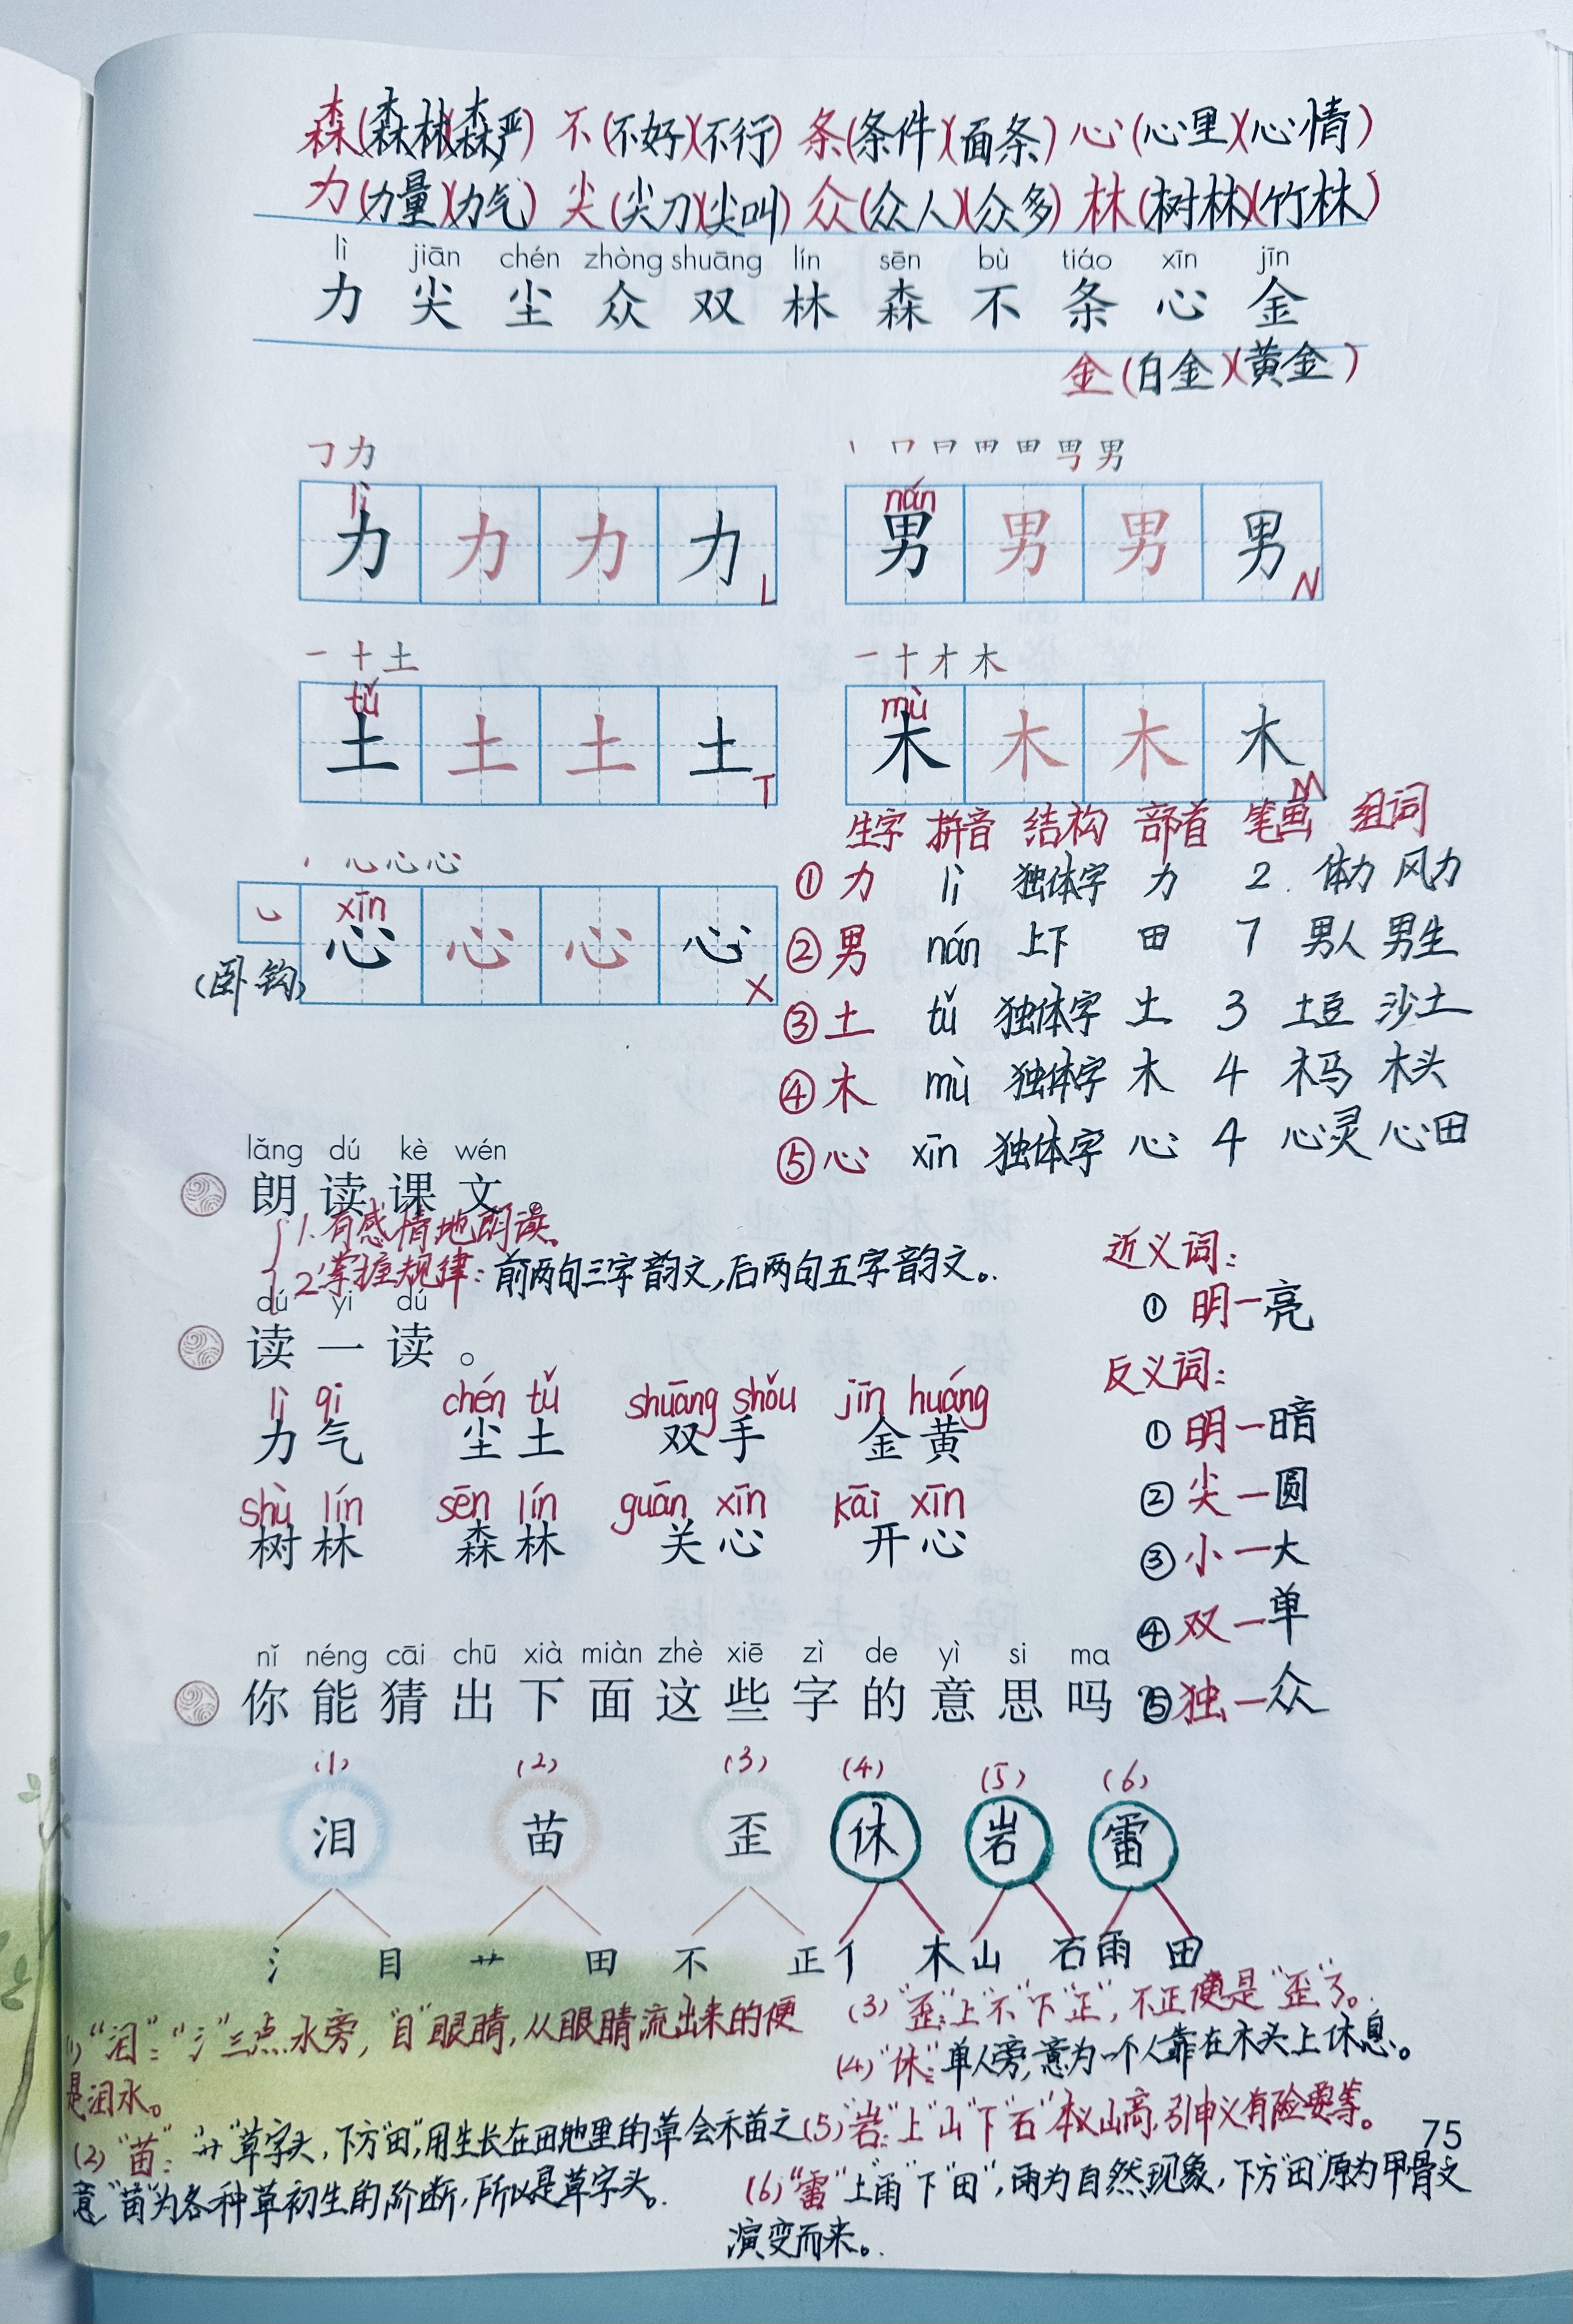 森(森林)(森严) 不(不好)(不行) 条(条件)(面条) 心(心里)(心情)
力(力量)(力气) 尖(尖刀)(尖叫) 众(众人)(众多) 林(树林)(竹林)
lì jiān chén zhòng shuāng lín sēn bù tiáo xīn jīn
力 尖 尘 众 双 林 森 不 条 心 金
金(白金)(黄金)
㇆ 力
丨 冂 日 田 田 男 男
lì nán
力 力 力 力 L 男 男 男 男 N
一 十 土 一 十 才 木
tǔ mù
土 土 土 土 T 木 木 木 木 M
心 心 心
xīn
心 心 心 心 X
(卧钩)
生字 拼音 结构 部首 笔画 组词
① 力 lì 独体字 力 2 体力 风力
② 男 nán 上下 田 7 男人 男生
③ 土 tǔ 独体字 土 3 土豆 沙土
④ 木 mù 独体字 木 4 木马 木头
⑤ 心 xīn 独体字 心 4 心灵 心田
lǎng dú kè wén
朗读课文。
1.有感情地朗读。
2.掌握规律:前两句三字韵文,后两句五字韵文。
dú yi dú
读一读。
lì qi chén tǔ shuāng shǒu jīn huáng
力气 尘土 双手 金黄
shù lín sēn lín guān xīn kāi xīn
树林 森林 关心 开心
近义词:
① 明一亮
反义词:
① 明一暗
② 尖一圆
③ 小一大
④ 双一单
⑤ 独一众
nǐ néng cāi chū xià miàn zhè xiē zì de yì si ma
你能猜出下面这些字的意思吗
(1) (2) (3) (4) (5) (6)
泪 苗 歪 休 岩 雷
氵 目 艹 田 不 正 亻 木 山 石 雨 田
(1)“泪”:“氵”三点水旁,“目”眼睛,从眼睛流出来的便
是泪水。
(2)“苗”:“艹”草字头,下方“田”,用生长在田地里的草会禾苗之
意“苗”为各种草初生的阶断,所以是草字头。
(3)“歪”:上“不”下“正”,不正便是“歪”了。
(4)“休”:单人旁,意为一个人靠在木头上休息。
(5)“岩”:上“山”下“石”本义山高,引申义有险要等。
(6)“雷”上“雨”下“田”,雨为自然现象,下方“田”原为甲骨文
演变而来。
75